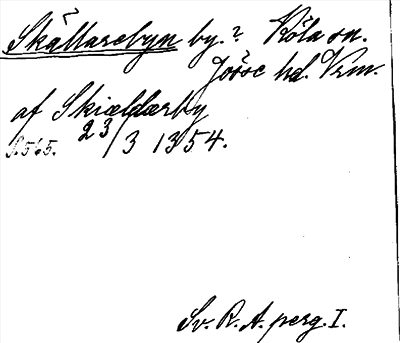 Skällarebyn by.? Köla sn.
Jösse hd. Vrm.
af Skiældærby
S. 565. 23/3 1354.
Sv. R. A. perg. I.